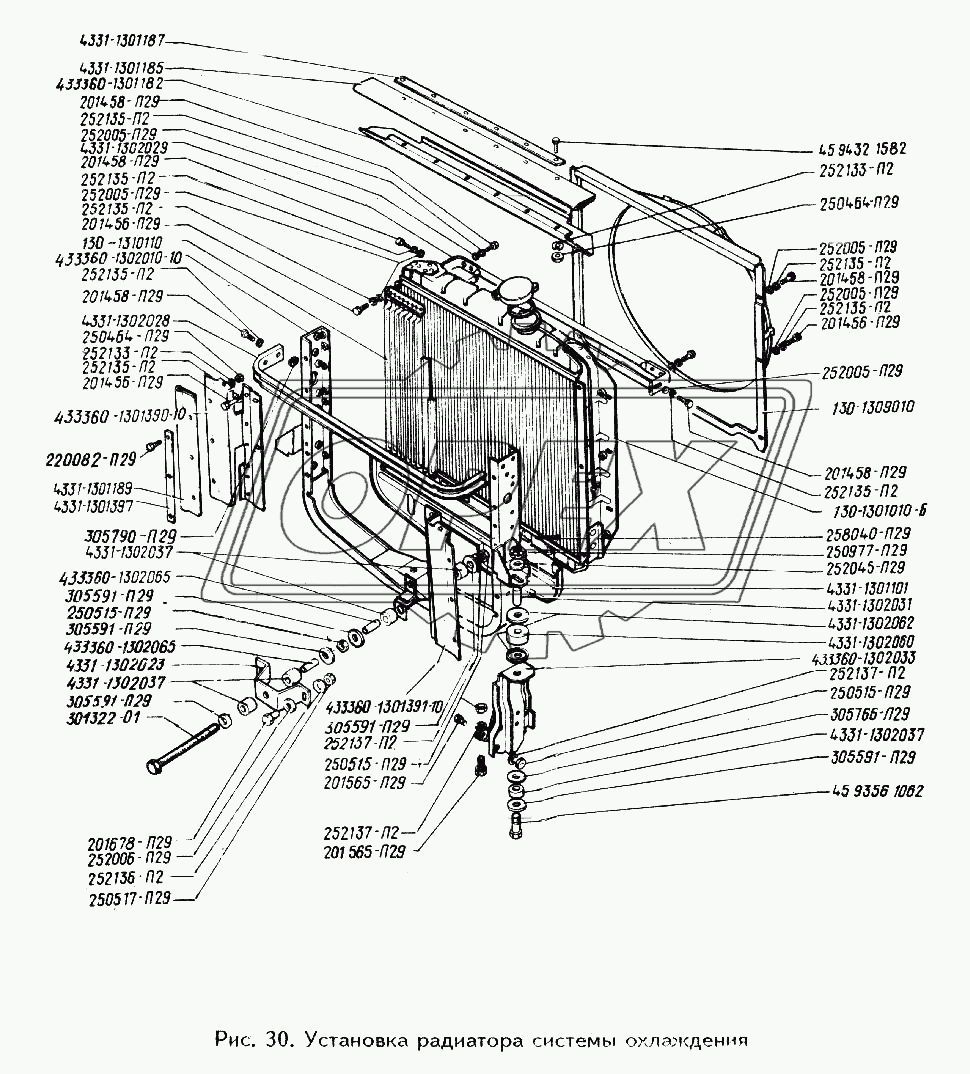 4331-1301187
4331-1301185
433360-1301182
201458-П29
252135-П2
252005-П29
4331-1302029
201458-П29
252135-П2
252005-П29
252135-П2
201456-П29
130-1310110
433360-1302010-10
252135-П2
201458-П29
4331-1302028
250464-П29
252133-П2
252135-П2
201456-П29
433360-1301390-10
220082-П29
4331-1301189
4331-1301397
305790-П29
4331-1302037
433360-1302065
305591-П29
250515-П29
305591-П29
433360-1302065
4331-1302023
4331-1302037
305591-П29
301322-01
201678-П29
252006-П29
252136-П2
250517-П29
433360-1301391-10
305591-П29
252137-П2
250515-П29
201565-П29
252137-П2
201565-П29
45 9432 1582
252133-П2
250464-П29
252005-П29
252135-П2
201458-П29
252005-П29
252135-П2
201456-П29
252005-П29
130-1309010
201458-П29
252135-П2
130-1301010-Б
258040-П29
250977-П29
252045-П29
4331-1301101
4331-1302031
4331-1302062
4331-1302060
433360-1302033
252137-П2
250515-П29
305766-П29
4331-1302037
305591-П29
45 9356 1062
ОРЕХ
Рис. 30. Установка радиатора системы охлаждения